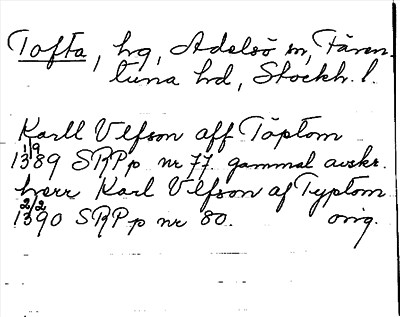 Tofta, hg, Adelsö sn, Fären-
tuna hd, Stockh. l.
Karll Vlfson aff Töptom
1/9
1389 SRPp nr 77. gammal avskr.
herr Karl Vlfson af Typtom
2/2
1390 SRPp nr 80. orig.